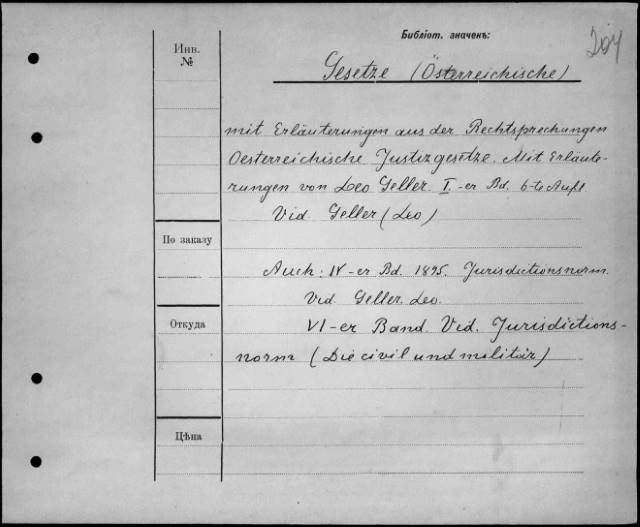 Библіот. значекъ:
204
Инв.
№
Gesetze (Österreichische)
mit Erläuterungen aus der Rechtsprechungen
Oesterreichische Justizgesetze. Mit Erläute-
rungen von Leo Geller. I.-er Bd. 6-te Aufl.
Vid. Geller (Leo)
По заказу
Auch: IV-er Bd. 1895. Jurisdictionsnorm.
Vid. Geller Leo.
Откуда
VI-er Band. Vid. Jurisdictions-
norm (Die civil und militär)
Цѣна